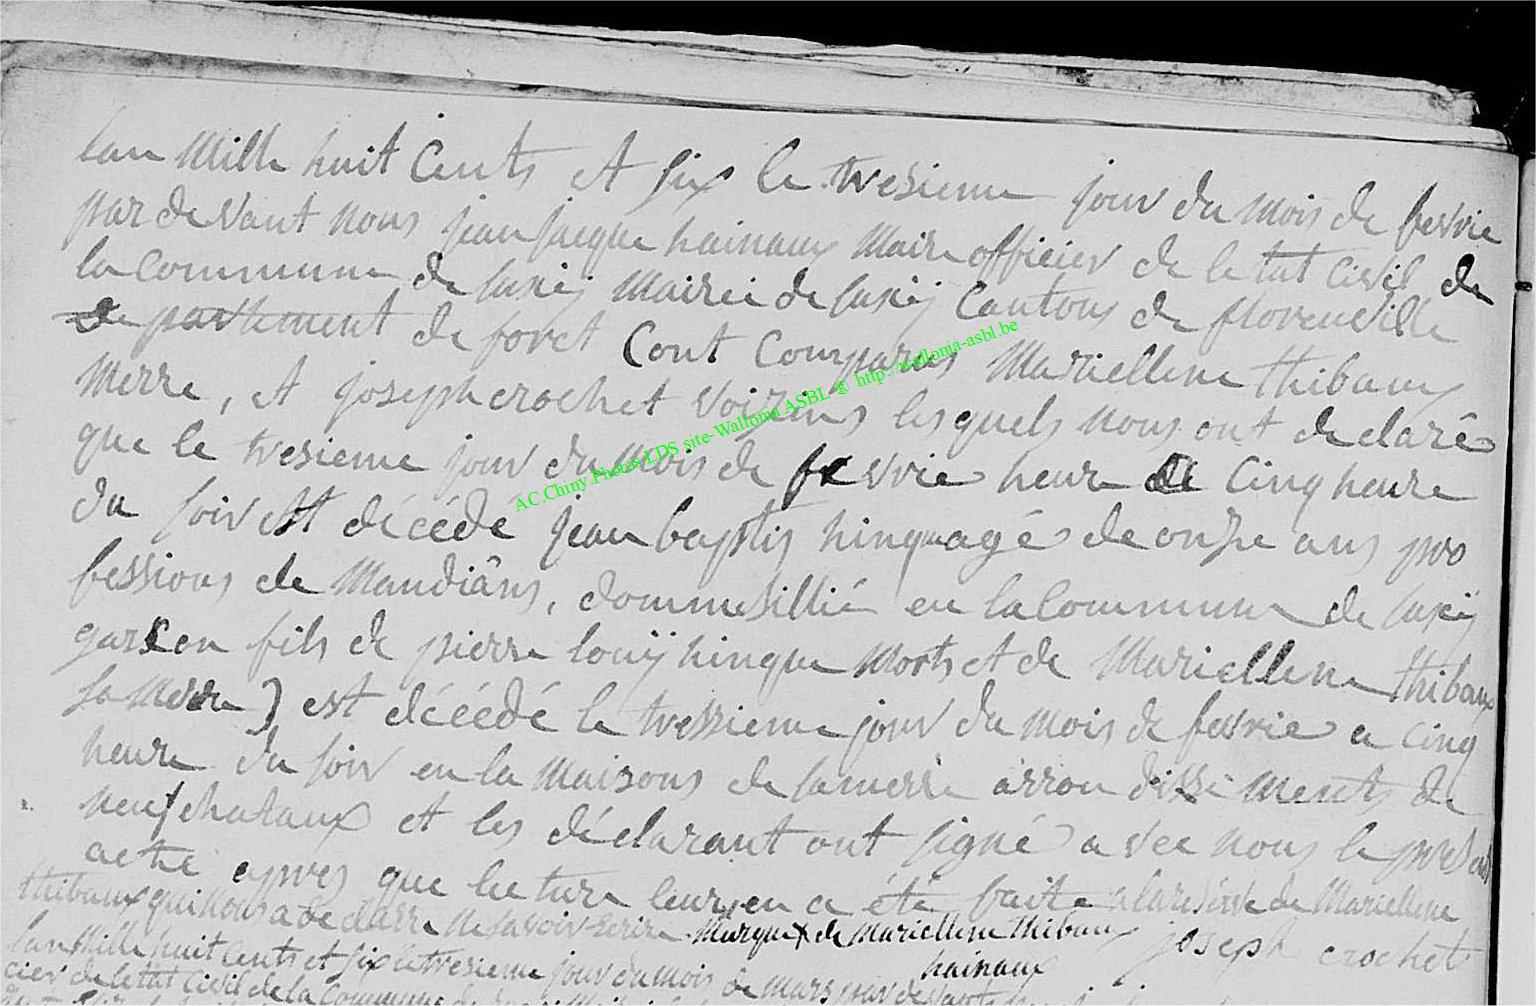 lan Mille huit Cents et six le tresieme jour du mois de fevrie
par devant nous jean jacque hainaux Maire officier de letat Civil de
la Commune de suxÿ Mairei de suxÿ Cantons de florenville
departement de foret Cont Comparus Mariellene thibaux
Merre, et joseph crochet voizins lesquels nous ont declarê
que le tresieme jour du mois de fevrie heure de Cinq heure
du soir est décédé jean baptis hinque agé de onze ans pro
fessions de Mandiâns, dommesillié en la Commune de suxÿ
garson fils de pierre louÿ hinque Morts et de Mariellene thibaux
sa Merre) est décédé le tressieme jour du mois de fevrie a cinq
heure du soir en la Maisons de samerre arrondissements de
neufchataux et les déclarant ont signé avec nous le present
acte apres que lecture leur en a été faite a la resérve de Mariellene
thibaux qui nous a declarre ne savoir Ecrire Marque x de Mariellene thibaux joseph crochet
hainaux
lan Mille huit Cents et six le tresieme jour du mois de mars par devant
cier de letat Civil de la Commune
AC.Chiny.Photos LDS site-Walloma ASBL @ http://walloma-asbl.be